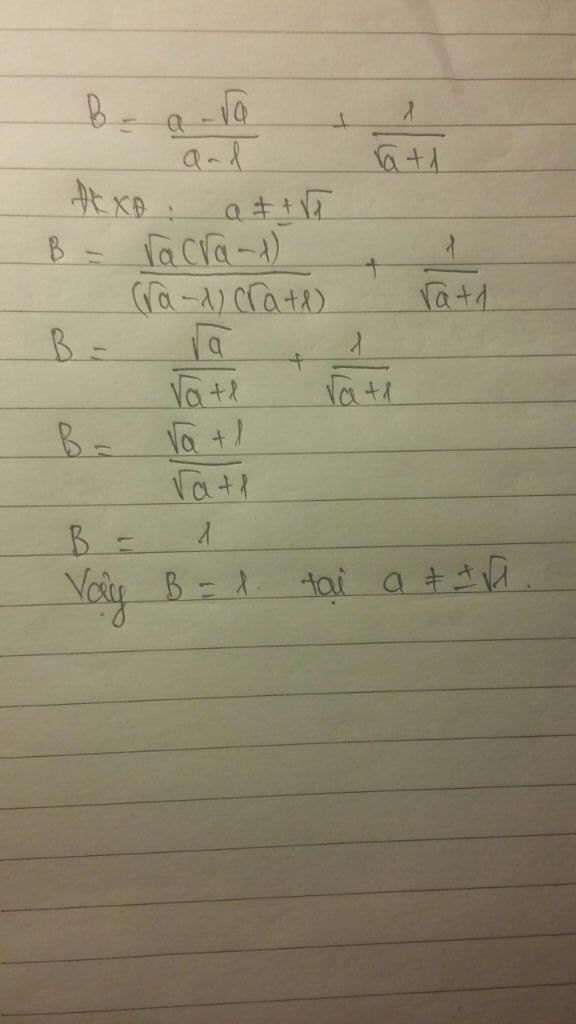 B = \frac{a - \sqrt{a}}{a - 1} + \frac{1}{\sqrt{a} + 1}
ĐKXĐ : a ≠ ±√1
B = \frac{\sqrt{a}(\sqrt{a} - 1)}{(\sqrt{a} - 1)(\sqrt{a} + 1)} + \frac{1}{\sqrt{a} + 1}
B = \frac{\sqrt{a}}{\sqrt{a} + 1} + \frac{1}{\sqrt{a} + 1}
B = \frac{\sqrt{a} + 1}{\sqrt{a} + 1}
B = 1
Vậy B = 1. tại a ≠ ±√1.